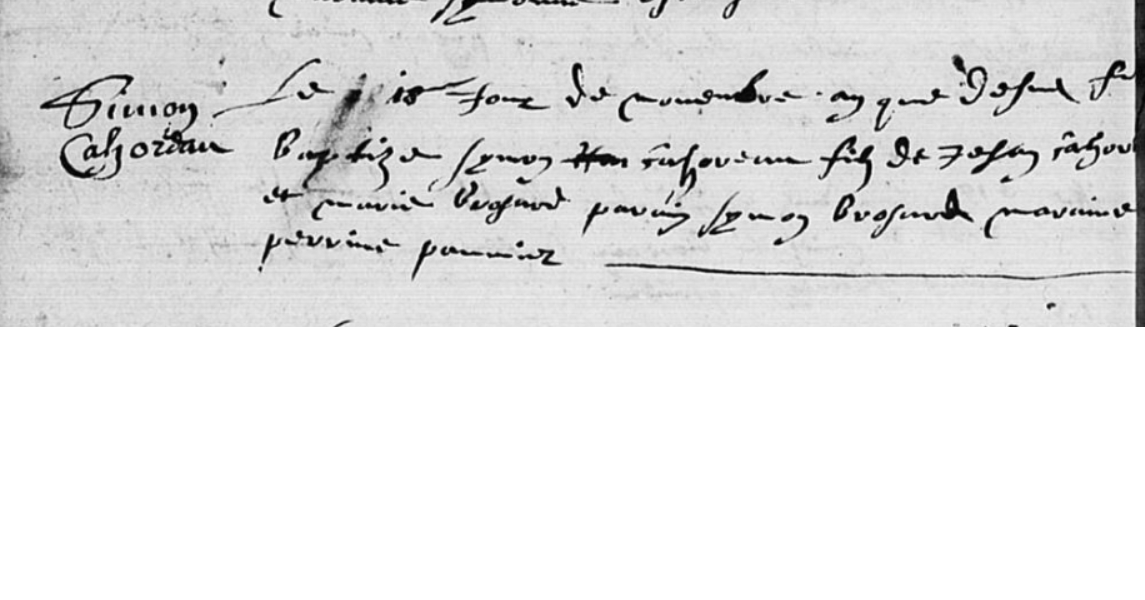 Simon
Cahoreau
Le 18e jour de novembre an que desus fu
baptize symon cahoreau filz de Jehan cahor
et marie brosard parain symon brosard maraine
perrine paumier